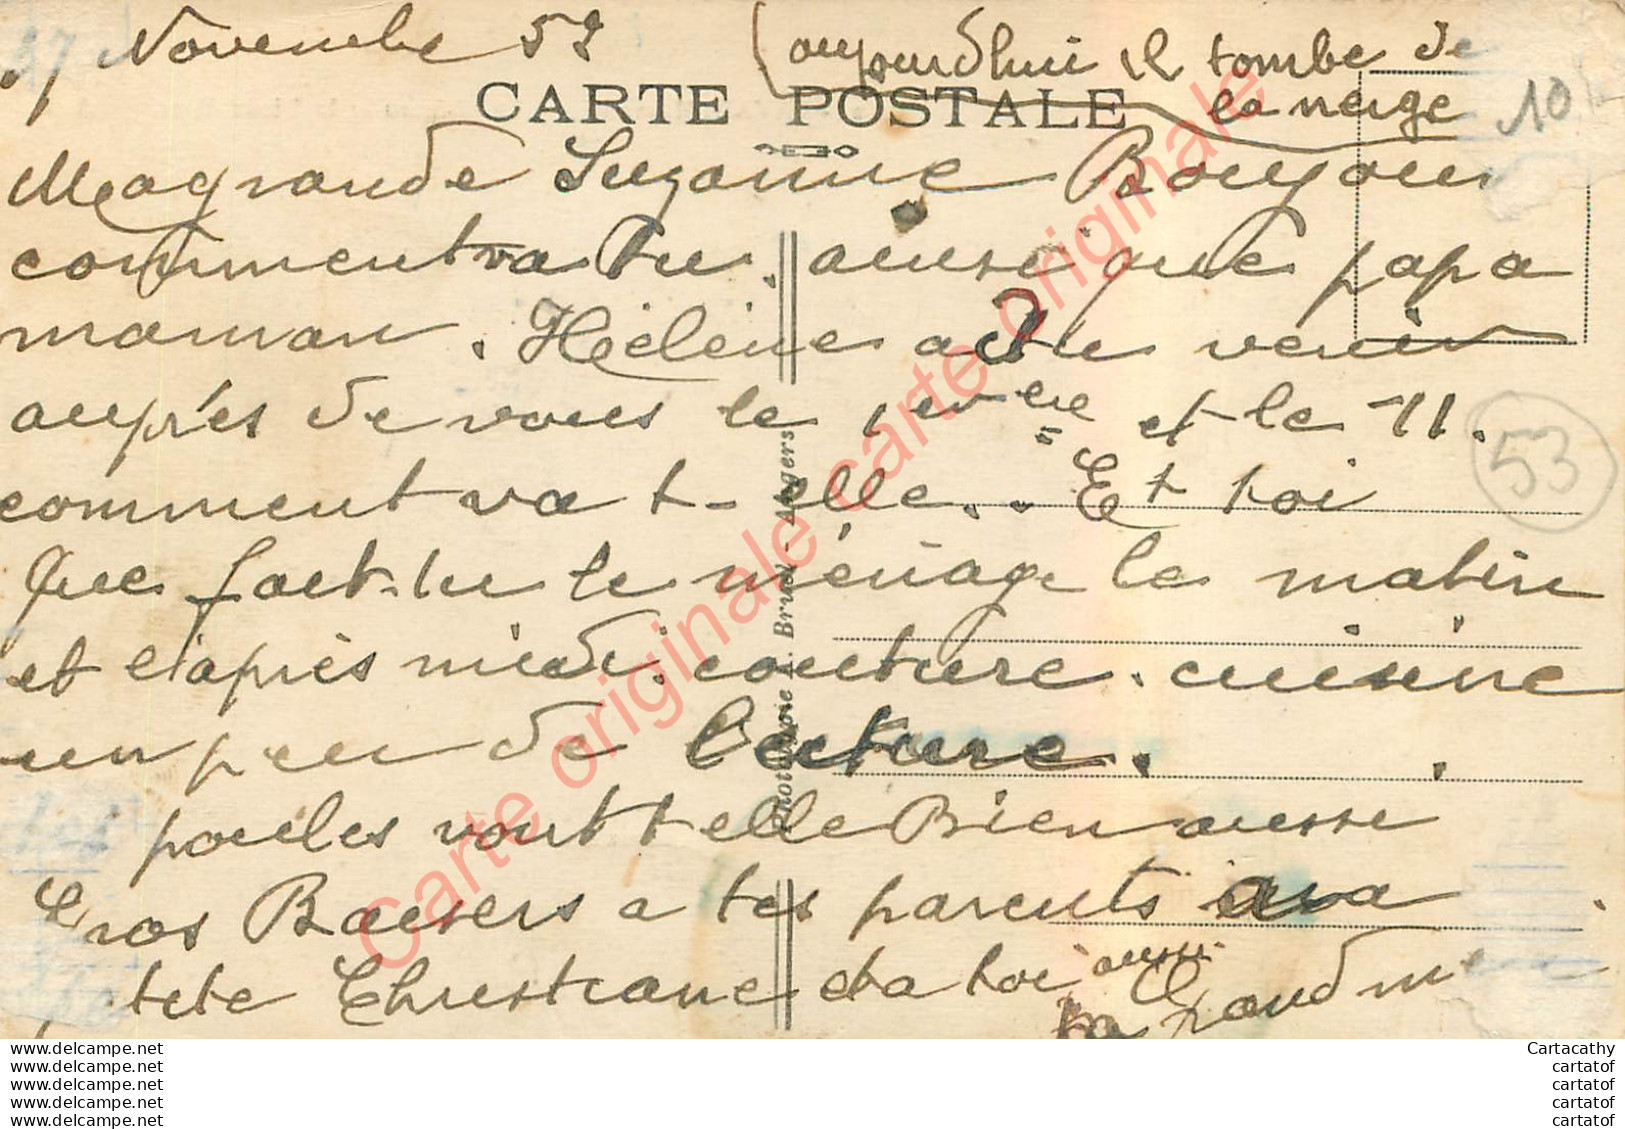 27 Novembre 52
aujourdhui il tombe de
la neige
CARTE POSTALE
10
Ma grande Suzanne Bonjour
comment va tu. ainsi que papa
maman. Hélène a du venir
auprés de vous le 1er et le 11.
comment va t-elle.. Et toi
53
Que fait-tu le ménage le matin
et l'après midi. couture. cuisine
un peu de lecture.
poules vont t elle Bien aussi
Gros Baisers a tes parents a ta
ptite Christiane et a toi aussi
ta Grand mè
Phototypie A. Bruel - Angers
Carte originale carte originale
www.delcampe.net
www.delcampe.net
www.delcampe.net
www.delcampe.net
www.delcampe.net
Cartacathy
cartatof
cartatof
cartatof
cartatof